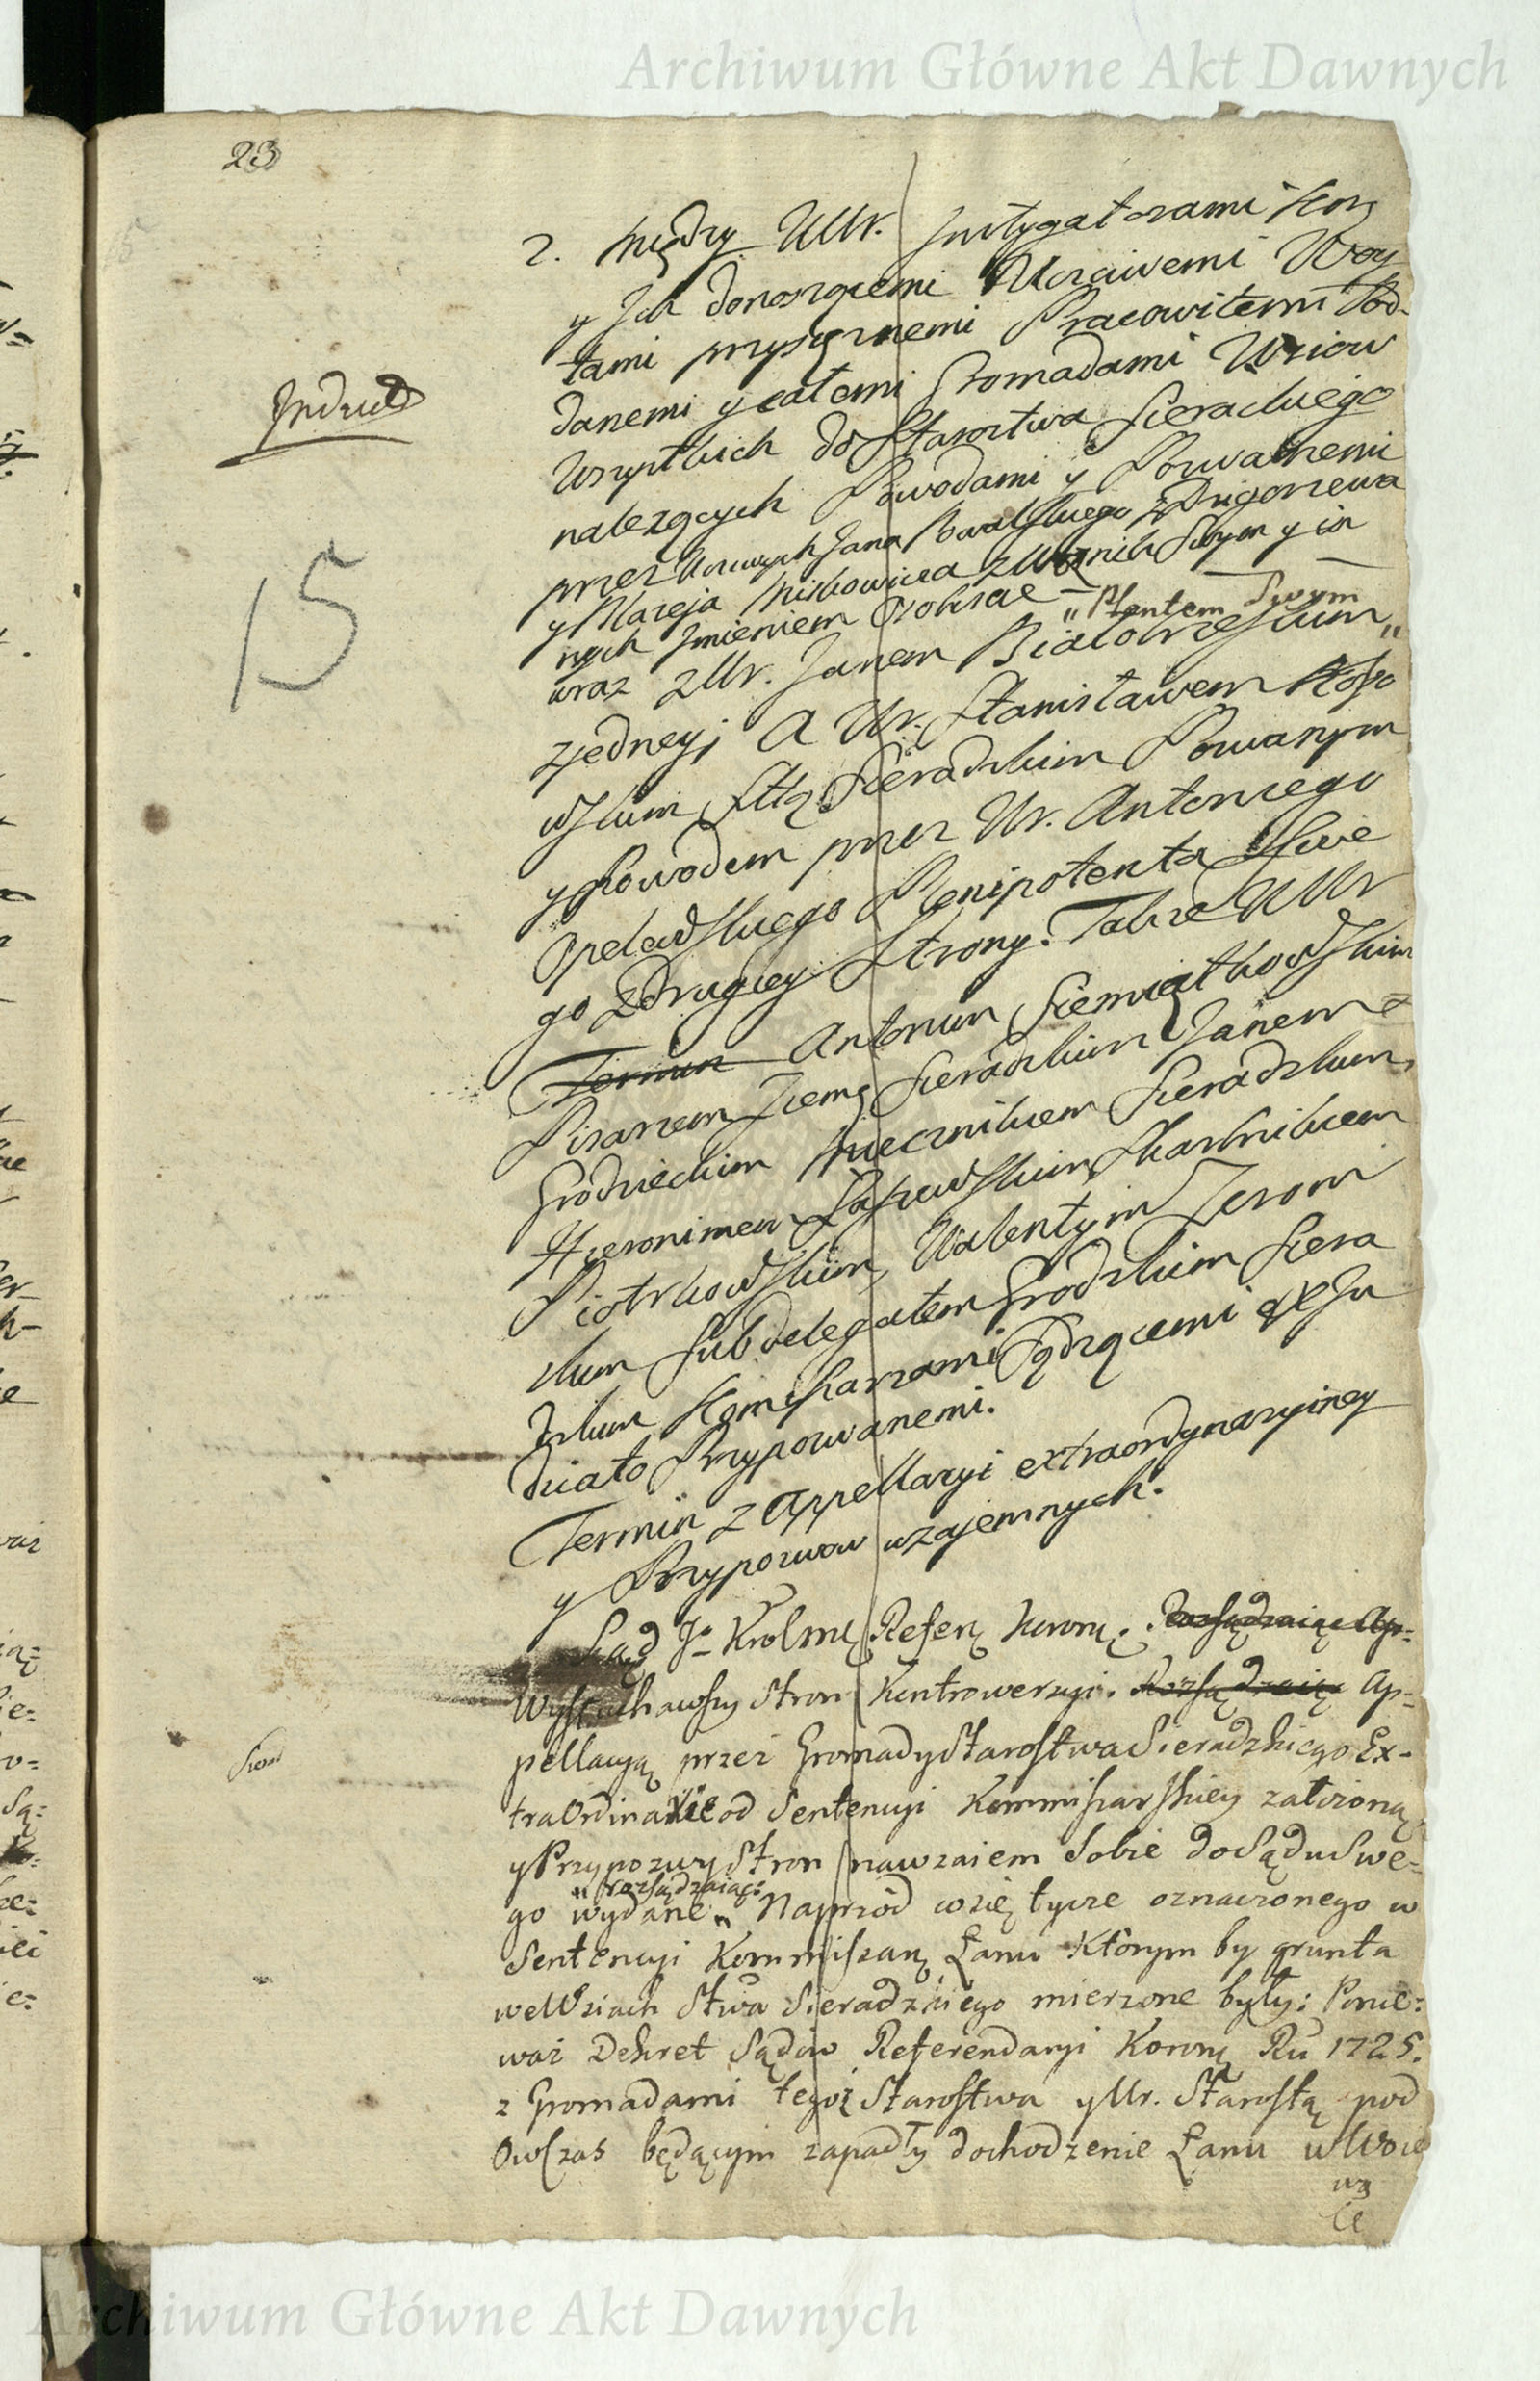 Archiwum Główne Akt Dawnych
23
2. Między UUr. Instygatorami Kor
y Ich donoszącemi Uczciwemi Woy
tami przysięznemi Pracowitemi Pod-
danemi y całemi Gromadami Wsiow
Wszystkich do Starostwa Sieradzkiego
należących Powodami y Pozwanemi
przez Uczciwych Jana Kowalskiego z
y Macieja Miśkowica z swym y in
nych Imieniem Oblicznie
"Plentem Swym
wraz z Ur. Janem Białobrzeskim"
zjedney; A Ur. Stanisławem Koss
wskim Sttą Sieradzkim Pozwanym
y Powodem przez Ur. Antoniego
Opelewskiego Plenipotenta Swe
go z drugiey Strony. Także UUr
Termin Antonim Siemiątkowskim
Pisarzem Ziemą Sieradzkim Janem
Grodzieckim Miecznikiem Sieradzkim
Hieronimem Skarbnikiem
Piotrkowskim, Walentym Zerom
skim Subdelegatem Grodzkim Siera
dzkim Komissarzami Sądzącemi ex Ju
diciato Przypozwanemi.
Termin z Appellacyi extraordynaryiney
y Przypozwow wzajemnych.
Indruct
15
Sąd Jo Krolmę Referę Koronę. Rozsądzaiąc Ap=
Wysłuchawszy Stron Kontrowersyi. Rozsądzaiąc Ap=
pellacyą przez Gromady Starostwa Sieradzkiego Ex-
traOrdinarie od Sentencyi Kommissarskiey założoną
y Przypozwy Stron nawzaiem Sobie do Sądu Swe=
" rozsądzaiąc:
go wydane " Naprzód co się tycze oznaczonego w
Sentencyi Kommissarę Łanu którym by grunta
we Wsiach Stwa Sieradzkiego mierzone były: Ponie=
waż Dekret Sądów Referendaryi Koronę Ru 1725.
z Gromadami tegoż Starostwa y Ur. Starostą pod
Owczas będącym zapadły dochodzenie Łanu w
Archiwum Główne Akt Dawnych